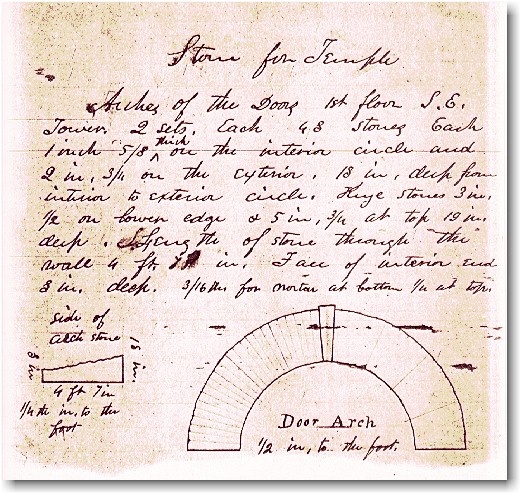 Stone for Temple
Arches of the Doors 1st floor S.E.
Tower. 2 sets. Each 48 stones Each
1 inch 5/8 thick on the interior circle and
2 in, 3/4 on the exterior. 18 in, deep from
interior to exterior circle. Keye stones 3 in,
1/2 on lower edge & 5 in, 3/4 at top 19 in.
deep. Length of stone through the
wall 4 ft, in. Face of interior end
8 in. deep. 3/16 ths for mortar at bottom 1/4 at top.
side of
arch stone
8 in
18 in.
4 ft 7 in
1/4 th in, to the
foot
Door Arch
1/2 in, to the foot.